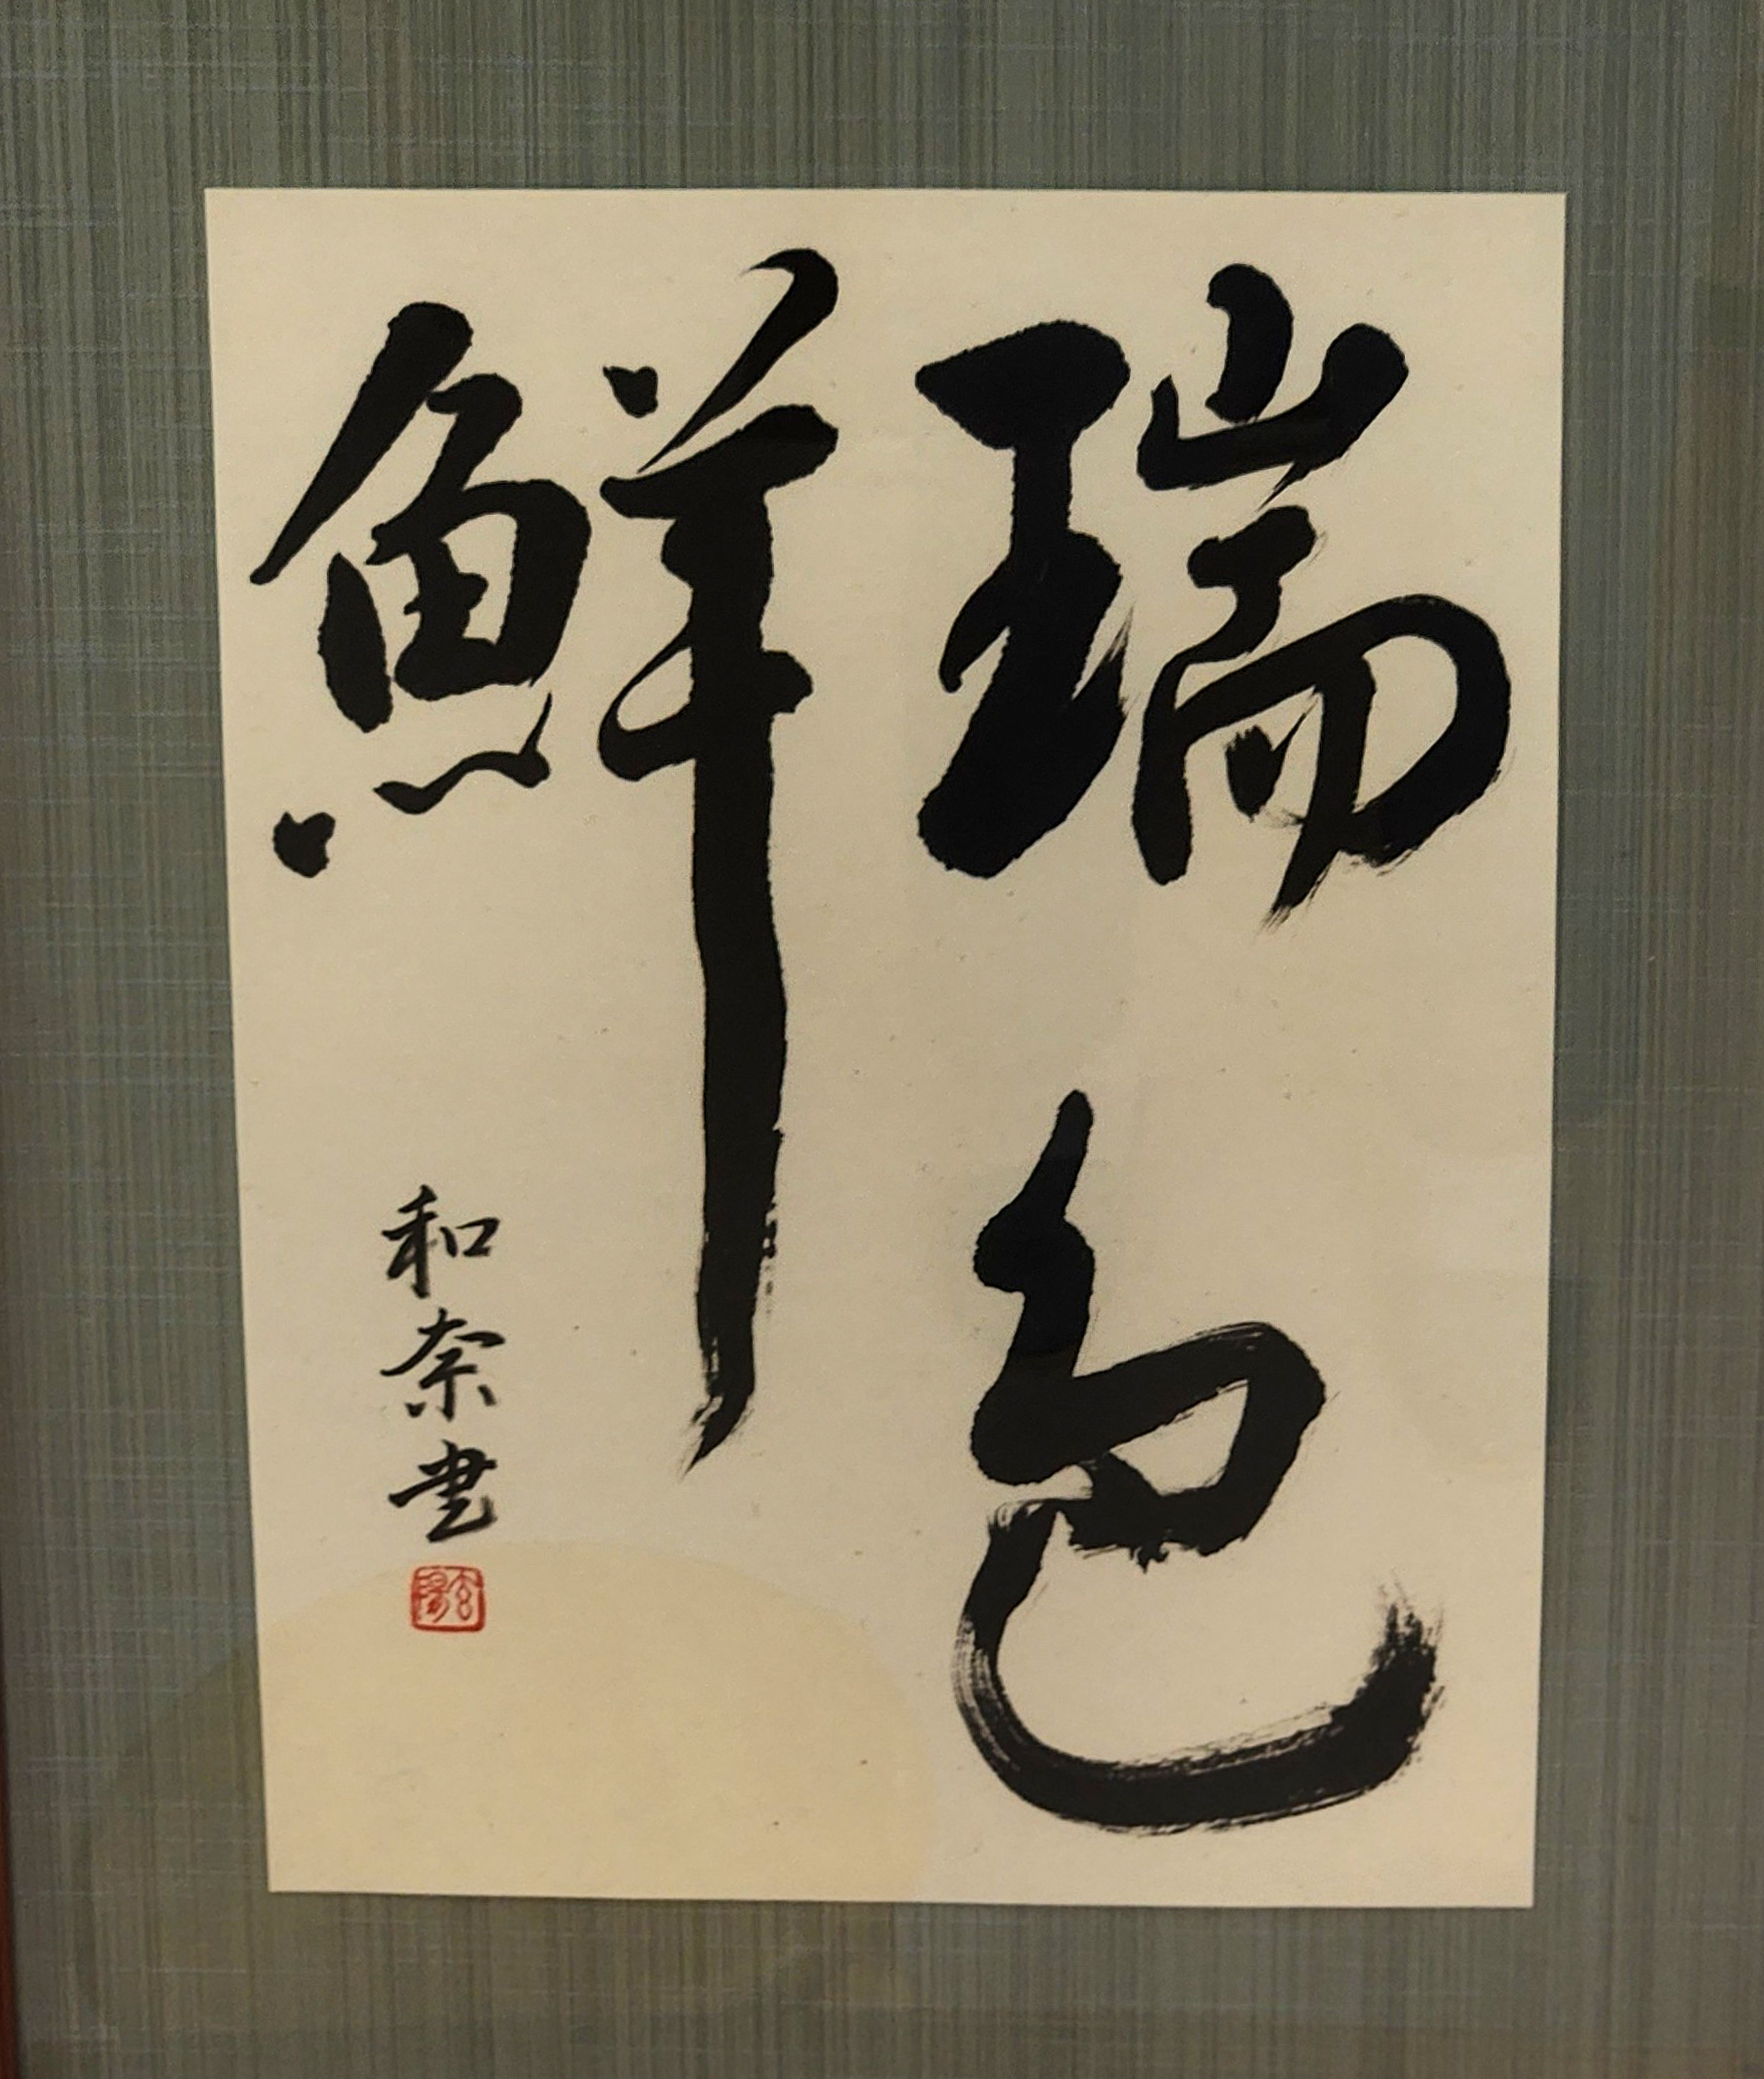 瑞色
鮮
和奈書